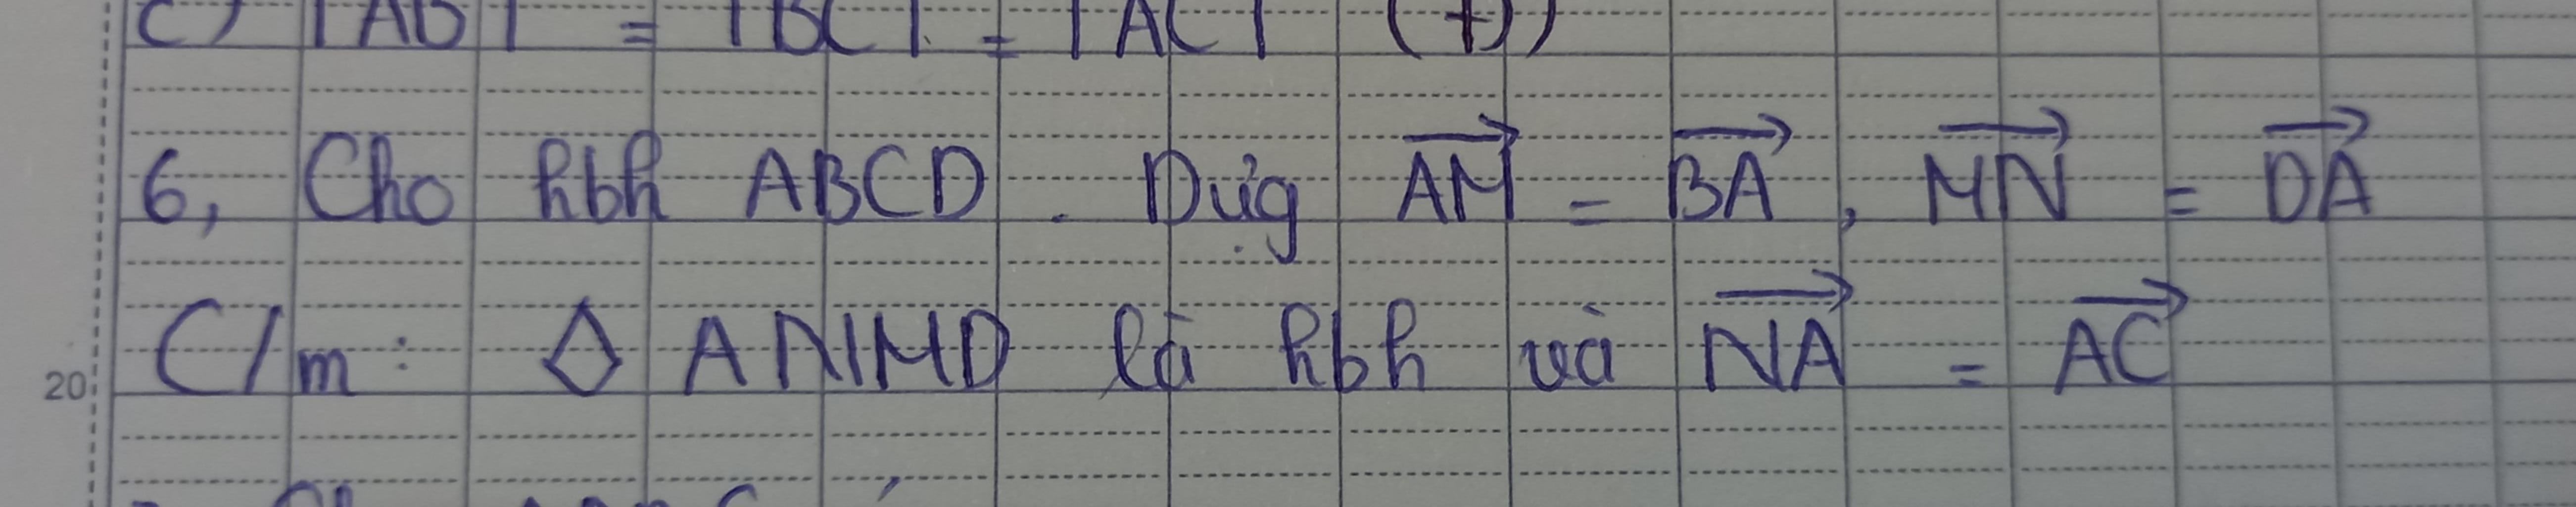 c) |AB| = |BC| = |AC| (t))
6, Cho hbh ABCD. Dựg \overrightarrow{AM} = \overrightarrow{BA}, \overrightarrow{MN} = \overrightarrow{DA}
C/m: ◊ ANMD là hbh và \overrightarrow{NA} = \overrightarrow{AC}
20